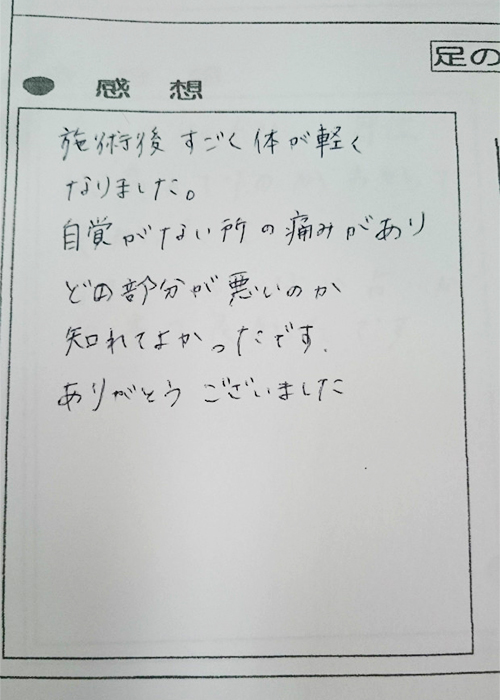 足の
● 感想
施術後 すごく体が軽く
なりました。
自覚がない所の痛みがあり
どの部分が悪いのか
知れてよかったです.
ありがとう ございました